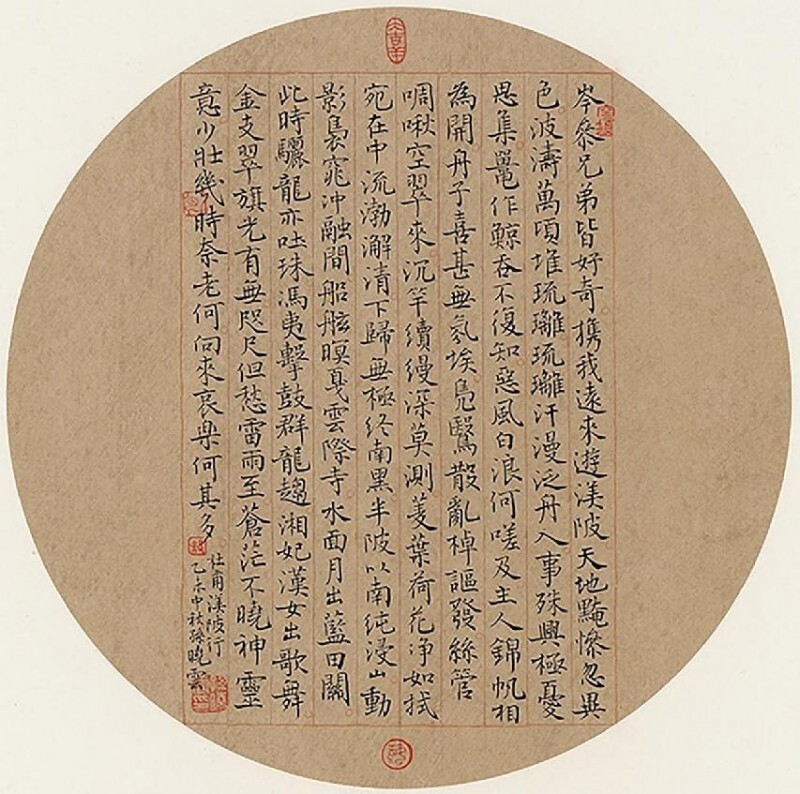 大吉羊
岑叅兄弟皆好奇携我遠來遊渼陂天地黤慘忽異
色波濤萬頃堆琉璃琉璃汗漫泛舟入事殊興極憂
思集鼉作鯨吞不復知惡風白浪何嗟及主人錦帆相
為開舟子喜甚無氛埃鳧鷖散亂棹謳發絲管
啁啾空翠來沉竿續縵深莫測菱葉荷花净如拭
宛在中流渤澥清下歸無極終南黑半陂以南純浸山動
影裊窕沖融間船舷暝戛雲際寺水面月出藍田關
此時驪龍亦吐珠馮夷擊鼓群龍趨湘妃漢女出歌舞
金支翠旗光有無咫尺但愁雷雨至蒼茫不曉神靈
意少壯幾時奈老何向來哀樂何其多
杜甫渼陂行
乙未中秋孫曉雲